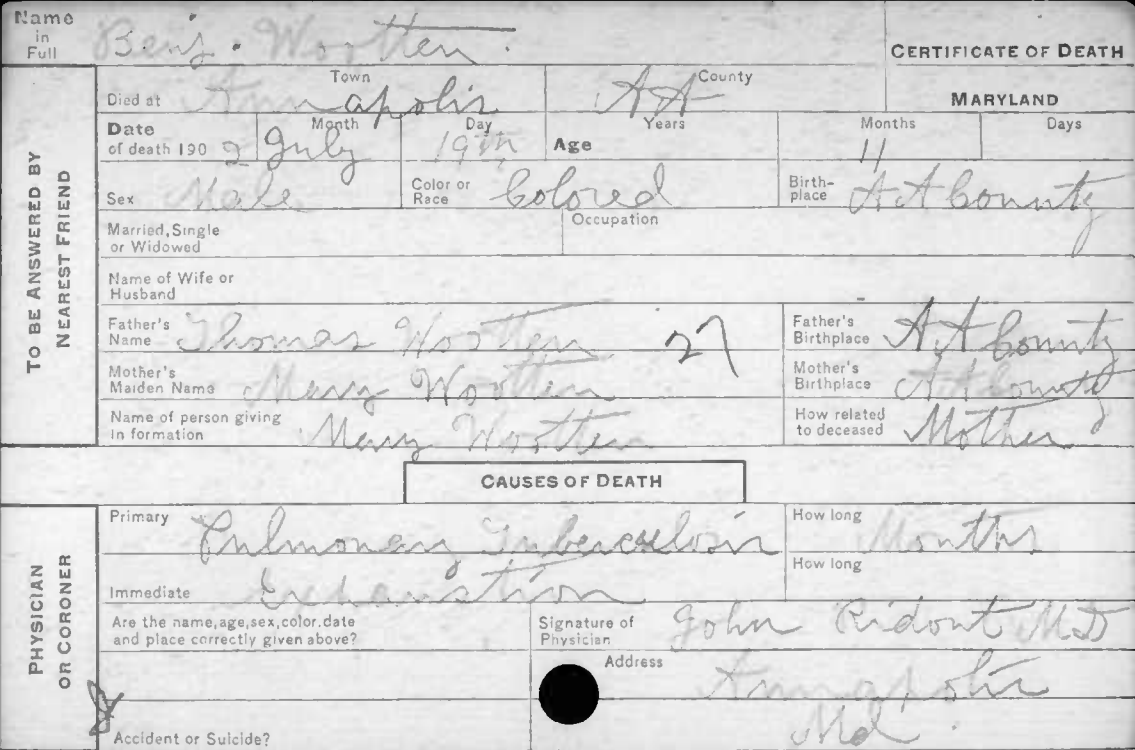 Name in Full Benj. Wootten.
CERTIFICATE OF DEATH
TO BE ANSWERED BY NEAREST FRIEND
Died at Town Annapolis County AA MARYLAND
Date of death 1902 Month July Day 19th Age Years Months 11 Days
Sex Male Color or Race Colored Birth-place AA County
Married, Single or Widowed Occupation
Name of Wife or Husband
Father's Name Thomas Wootten 27 Father's Birthplace AA County
Mother's Maiden Name Mary Wootten Mother's Birthplace AA County
Name of person giving In formation Mary Wootten How related to deceased Mother
CAUSES OF DEATH
PHYSICIAN OR CORONER
Primary Pulmonary Tuberculosis How long Months
Immediate Exhaustion How long
Are the name,age,sex,color.date and place correctly given above? Signature of Physician John Ridout MD
Address Annapolis
Md.
Accident or Suicide?